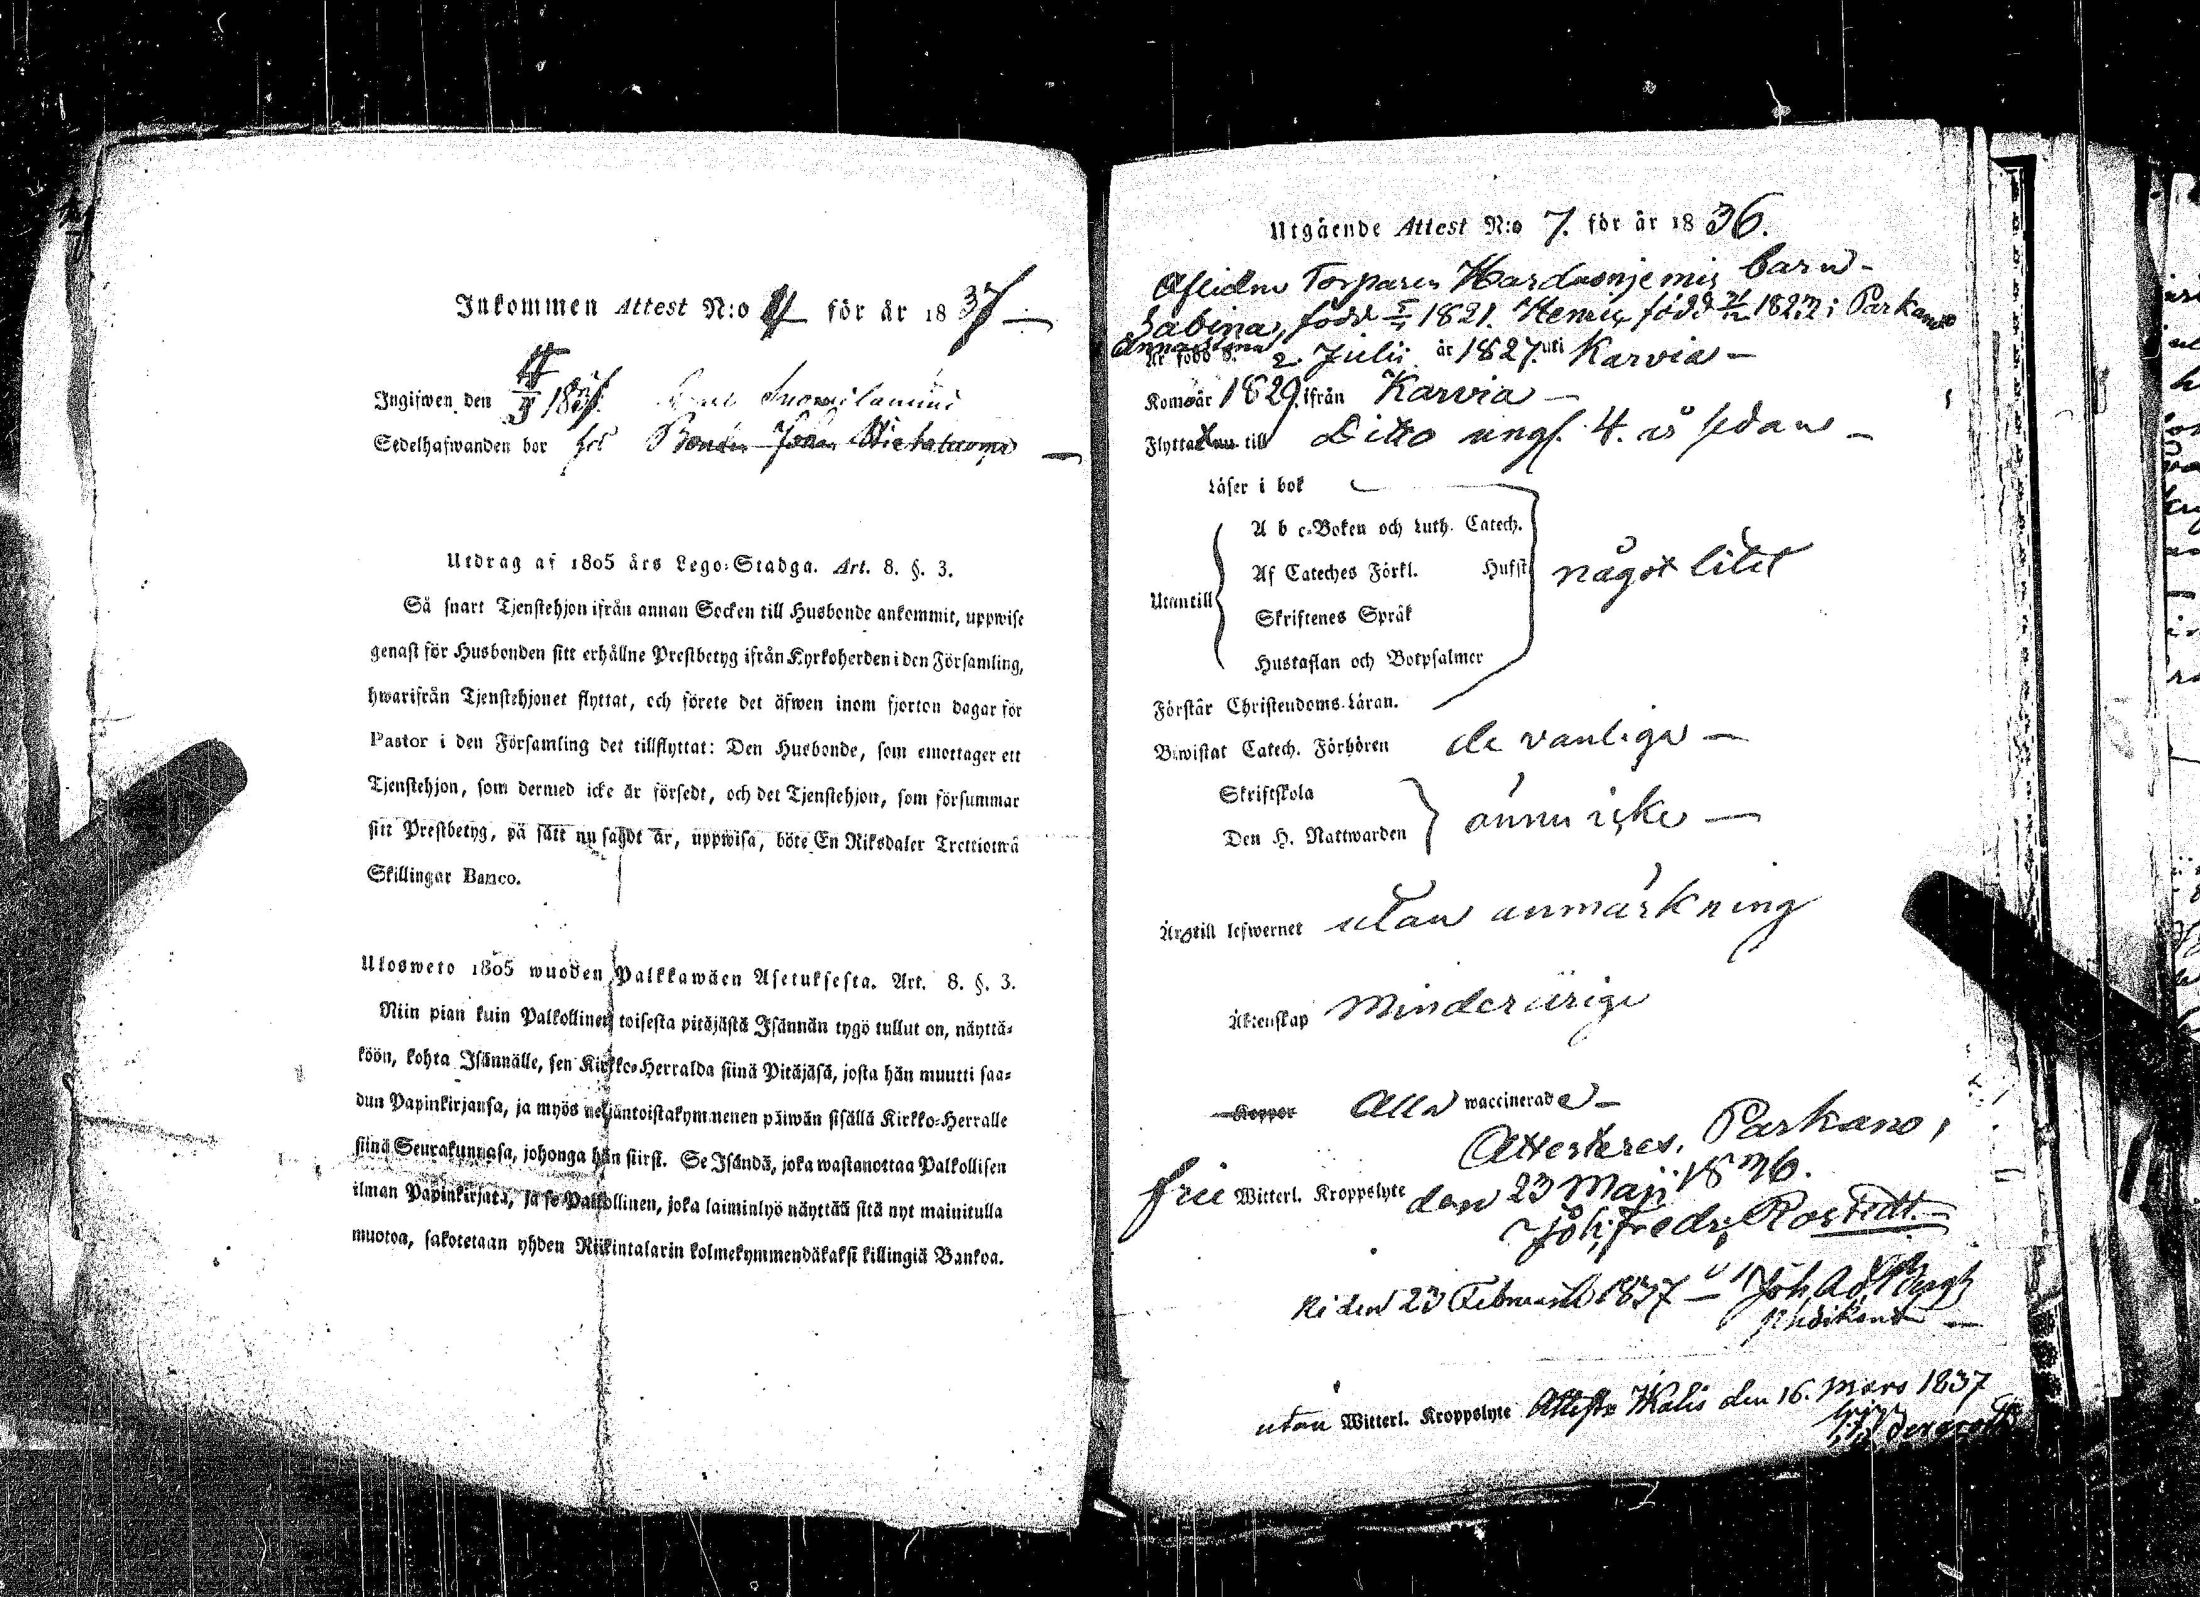 Inkommen Attest N:o 4 för år 1837
Ingifwen den 1837.
Sedelhafwanden bor hos Bonden Johan
Utdrag af 1805 års Lego-Stadga. Art. 8. §. 3.
Så snart Tjenstehjon ifrån annan Socken till Husbonde ankommit, uppwise
genast för Husbonden sitt erhållne Prestbetyg ifrån Kyrkoherden i den Församling,
hwarifrån Tjenstehjonet flyttat, och förete det äfwen inom fjorton dagar för
Pastor i den Församling det tillflyttat: Den Husbonde, som emottager ett
Tjenstehjon, som dermed icke är försedt, och det Tjenstehjon, som försummar
sitt Prestbetyg, på sätt nu sagdt är, uppwisa, böte En Riksdaler Trettiotwå
Skillingar Banco.
Ulosweto 1805 wuoden Palkkawäen Asetuksesta. Art. 8. §. 3.
Niin pian kuin Palkollinen toisesta pitäjästä Isännän tygö tullut on, näyttä-
köön, kohta Isännälle, sen Kirkko-Herralda siinä Pitäjäsä, josta hän muutti saa-
dun Papinkirjansa, ja myös neljäntoistakymmenen päiwän sisällä Kirkko-Herralle
siinä Seurakunnasa, johonga hän siirst. Se Isändä, joka wastanottaa Palkollisen
ilman Papinkirjata, ja se Palkollinen, joka laiminlyö näyttää sitä nyt mainitulla
muotoa, sakotetaan yhden Riikintalarin kolmekymmendäkaksi killingiä Bankoa.
Utgående Attest N:o 7. för år 1836.
Aflidne Torparen barn
Sabina, född 1821. Henric född 1823 i Parkano
Är född d. 2 Julii år 1827. uti Karvia
Kom år 1829. ifrån Karvia
Flyttat till Ditto ungf. 4. år sedan
Läser i bok
A b c-Boken och Luth. Catech.
Af Cateches Förkl. Husft
något litet
Utantill
Skriftenes Språk
Hustaflan och Botpsalmer
Förstår Christendoms-Läran.
Biwistat Catech. Förhören de vanliga
Skriftskola
Den H. Nattwarden
ännu icke
Är till lefwernet utan anmärkning
Äktenskap Minderårige
Koppor Alla waccinerade
Attesteres, Parkano,
frie Witterl. Kroppslyte den 23 Maji 1836.
Joh: Fredr: Rostedt.
den 23 Februarii 1837
utan Witterl. Kroppslyte den 16. Mars 1837